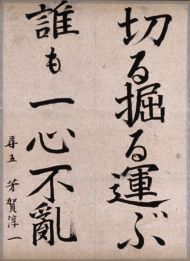 切る掘る運ぶ
誰も一心不亂
尋五 芳賀淳一